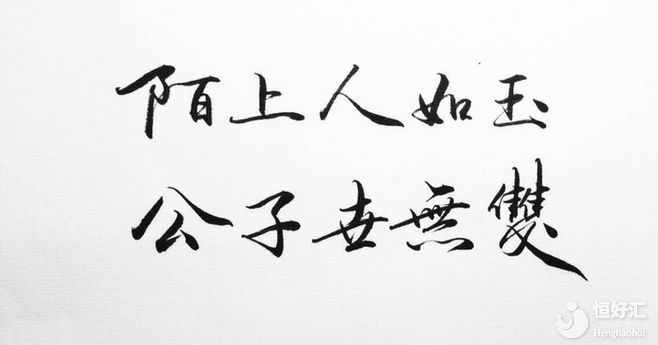 陌上人如玉
公子世無雙
恒好汇
Henghaohui